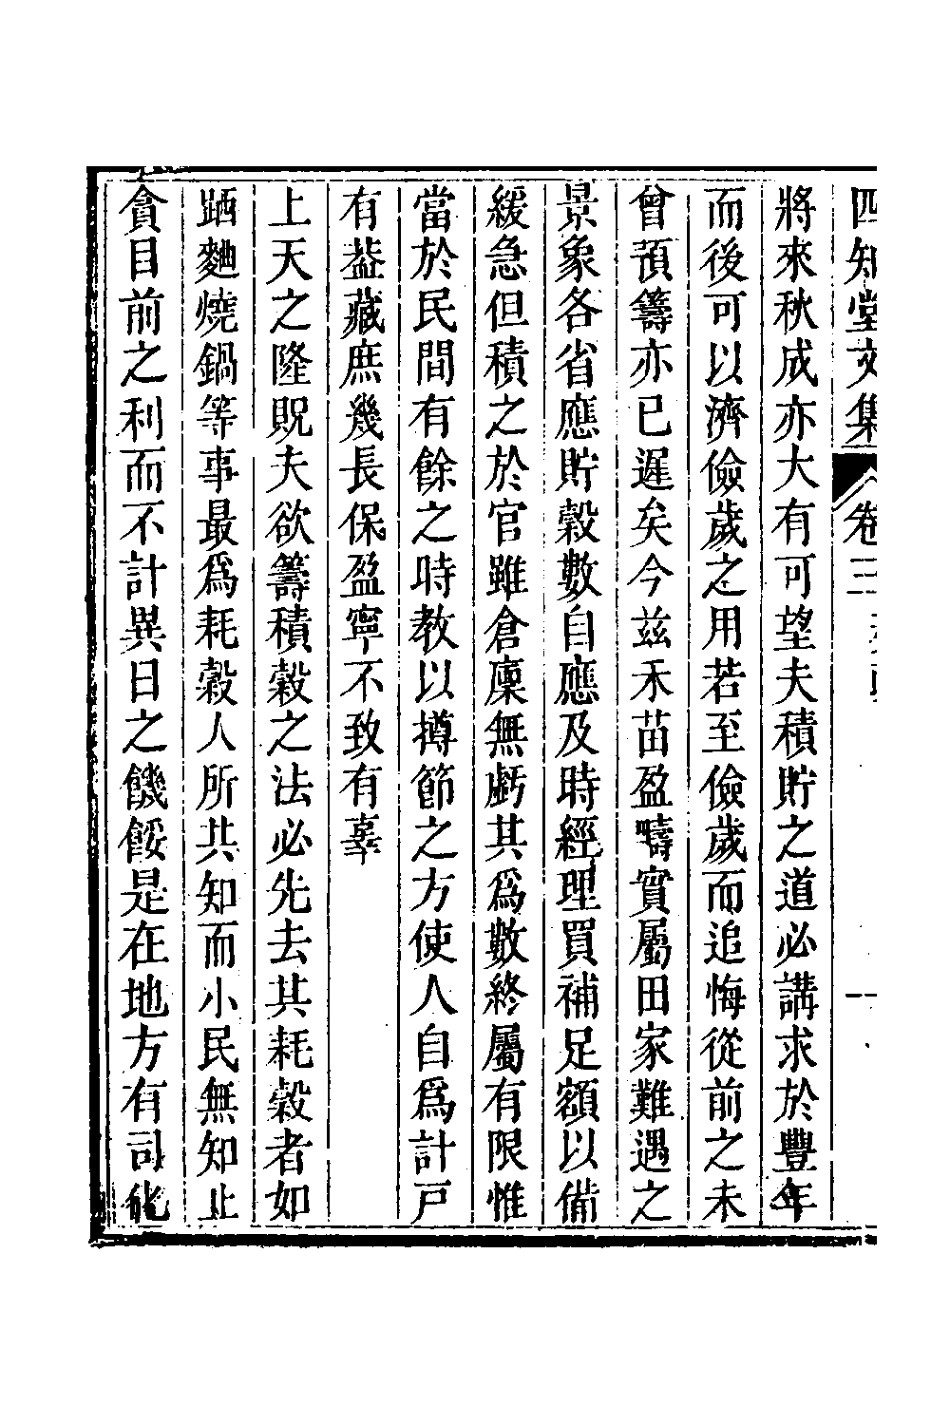 四知堂文集 卷三
將來秋成亦大有可望夫積貯之道必講求於豐年
而後可以濟儉歲之用若至儉歲而追悔從前之未
曾預籌亦已遲矣今兹禾苗盈疇實屬田家難遇之
景象各省應貯穀數自應及時經理買補足額以備
緩急但積之於官雖倉廩無虧其爲數終屬有限惟
當於民間有餘之時教以撙節之方使人自爲計戸
有葢藏庶幾長保盈寧不致有辜
上天之隆貺夫欲籌積穀之法必先去其耗穀者如
跴麯燒鍋等事最爲耗穀人所共知而小民無知止
貪目前之利而不計異日之饑餒是在地方有司化